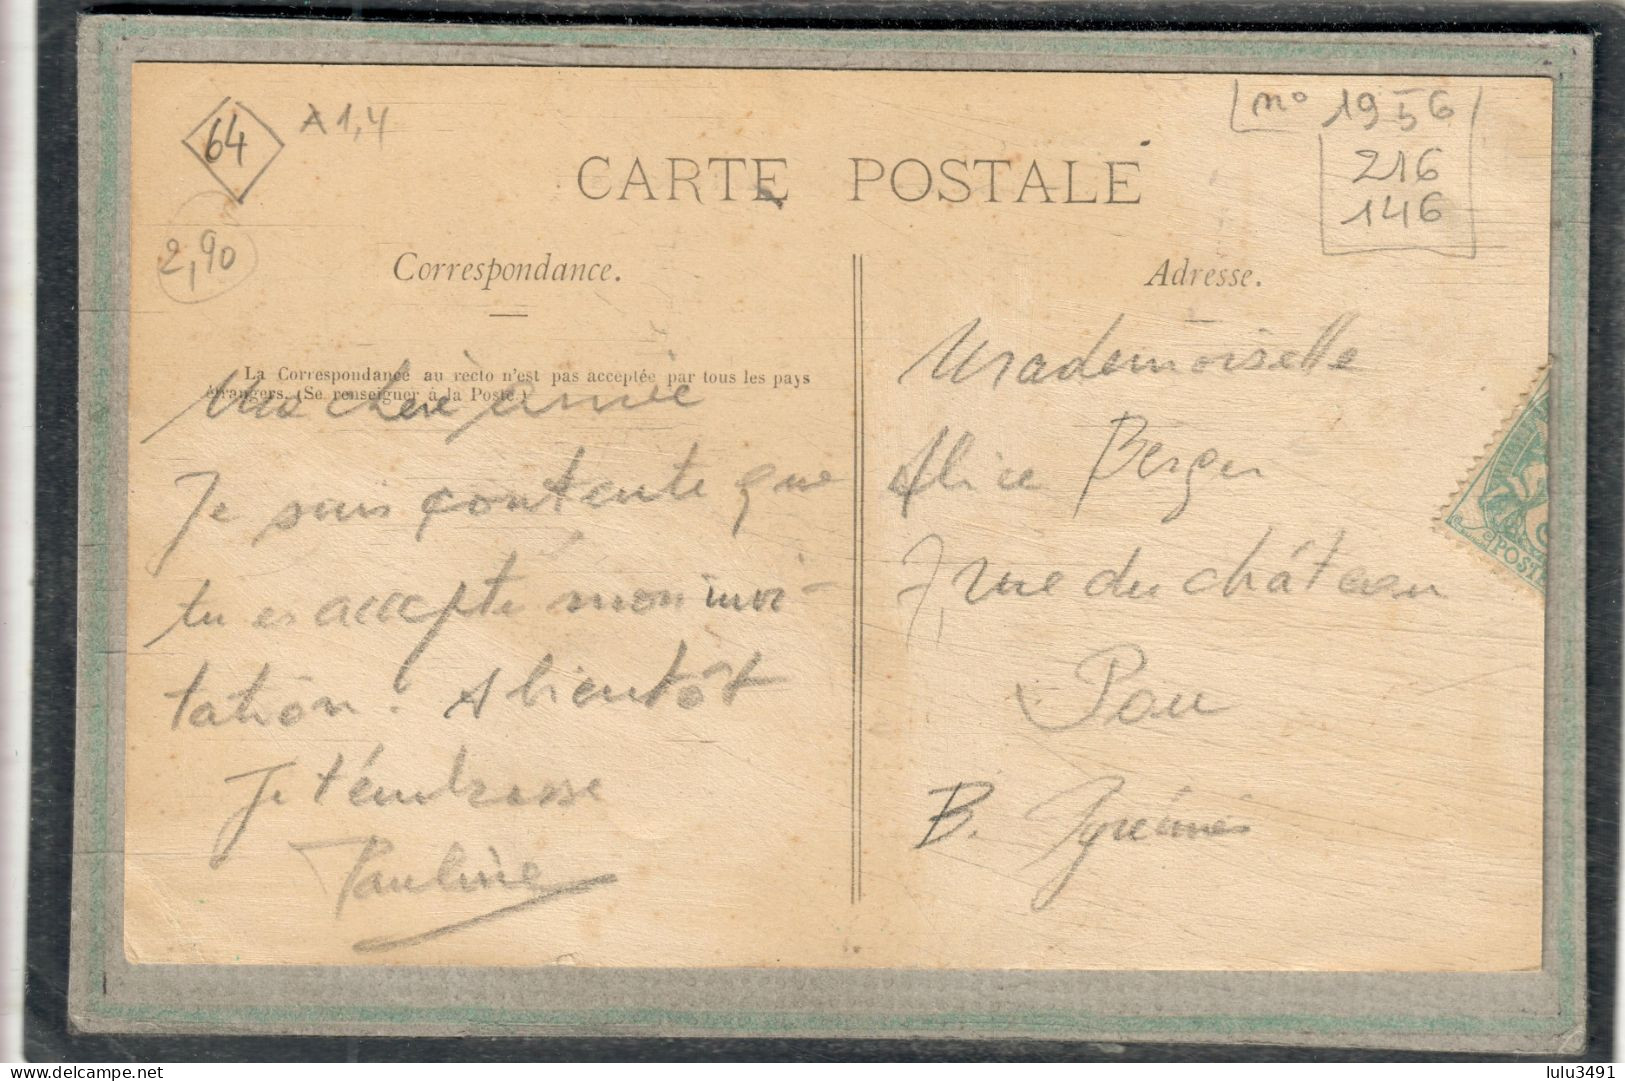 64
A 1,4
no 1956
216
146
CARTE POSTALE
2,90
Correspondance.
Adresse.
La Correspondance au recto n'est pas acceptée par tous les pays
étrangers. (Se renseigner à la Poste.)
Ma chère amie
Je suis contente que
tu es accepté mon invi-
tation. A bientôt
Je t'embrasse
Pauline
Mademoiselle
Alice Berger
7, rue du château
Pau
B. Pyrénées
POSTE
delcampe.net
lulu3491